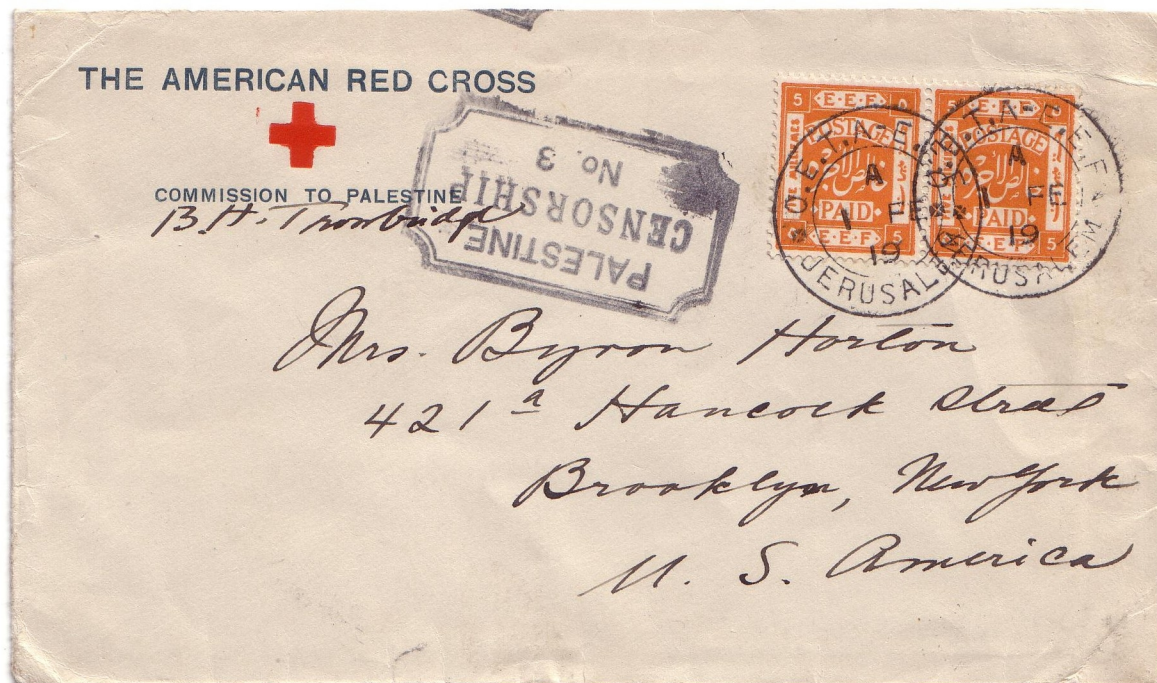 THE AMERICAN RED CROSS
COMMISSION TO PALESTINE
B. H. Trowbridge
PALESTINE
CENSORSHIP
No. 3
5 E.E.F
POSTAGE
PAID
E.E.F 5
5 E.E.F
POSTAGE
PAID
E.E.F 5
O.E.T.A-E.E.F.
A
1 FE
19
JERUSALEM
O.E.T.A-E.E.F.
A
1 FE
19
JERUSALEM
Mrs. Byron Horton
421 a Hancock Street
Brooklyn, New York
U. S. America